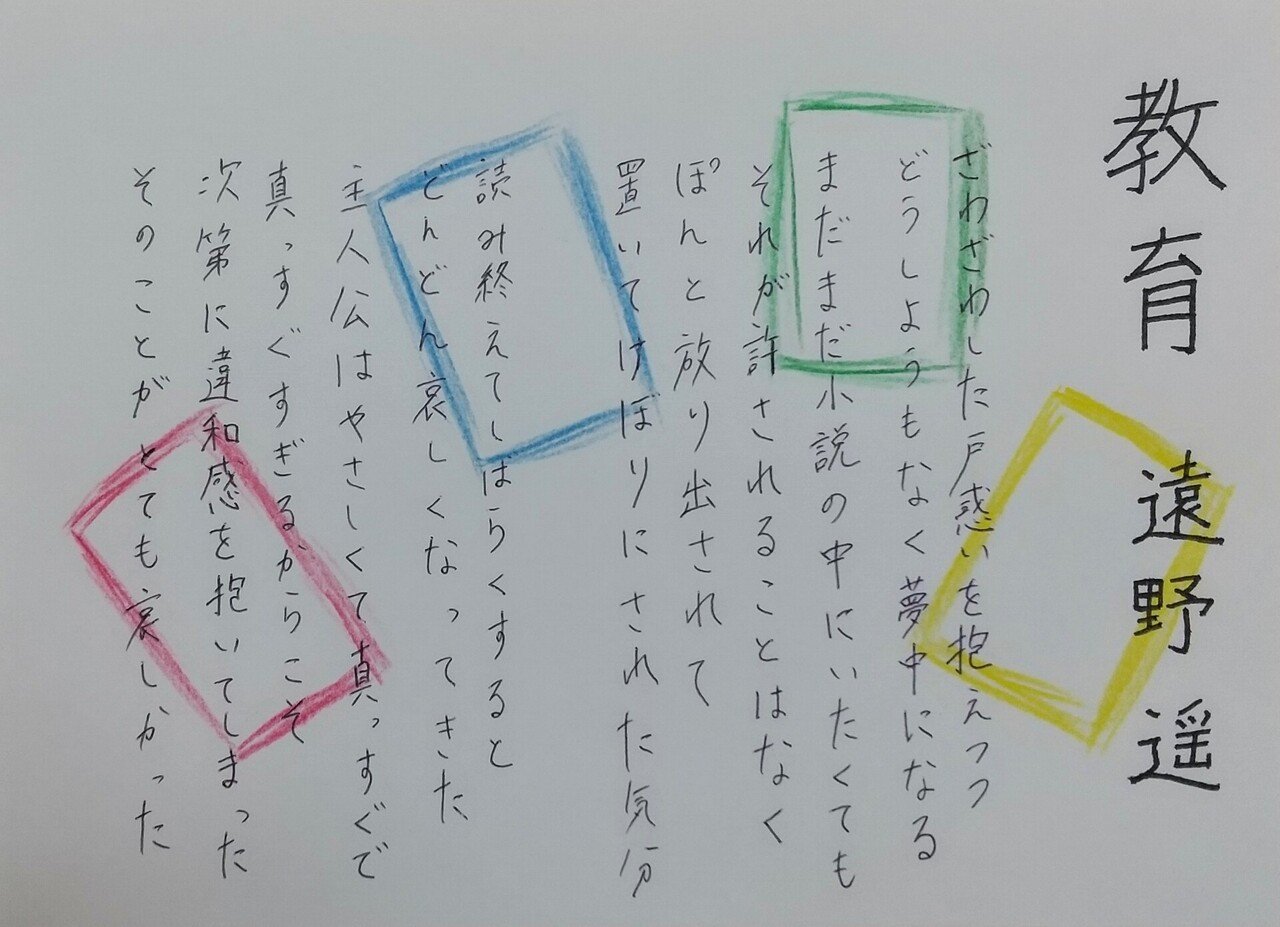 教育 遠野遥
ざわざわした戸惑いを抱えつつ
どうしようもなく夢中になる
まだまだ小説の中にいたくても
それが許されることはなく
ぽんと放り出されて
置いてけぼりにされた気分
読み終えてしばらくすると
どんどん哀しくなってきた
主人公はやさしくて真っすぐで
真っすぐすぎるからこそ
次第に違和感を抱いてしまった
そのことがとても哀しかった